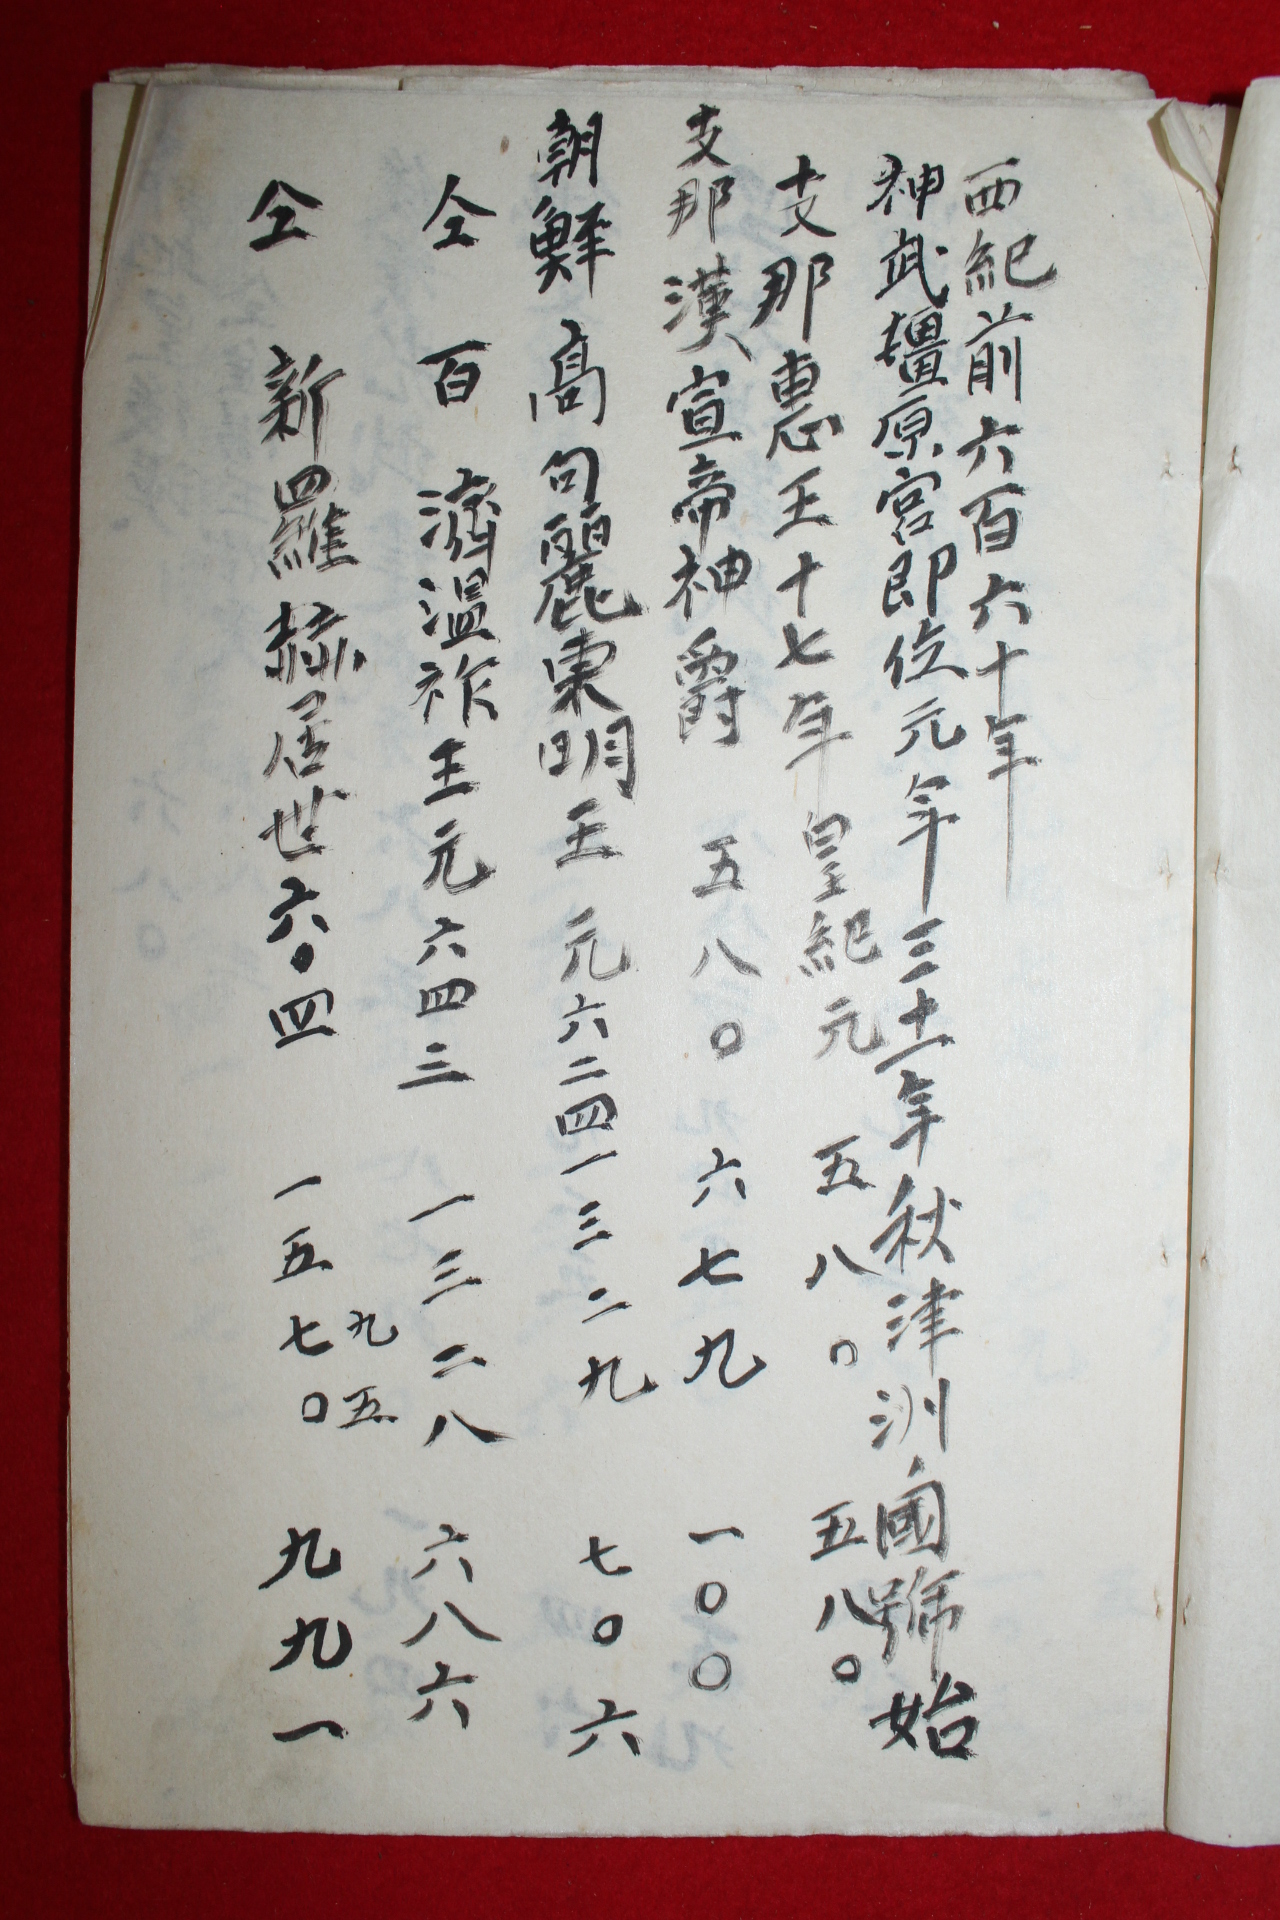 西紀前六百六十年
神武橿原宮即位元年三十一年秋津洲國號始
支那惠王十七年皇紀元 五八〇 五八〇
支那漢宣帝神爵 五八〇 六七九 一〇〇
朝鮮高句麗東明王元六二四一三二九 七〇六
仝 百濟温祚王元六四三 一三二八 六八六
仝 新羅赫居世六〇四 一五七〇 九九一
九五